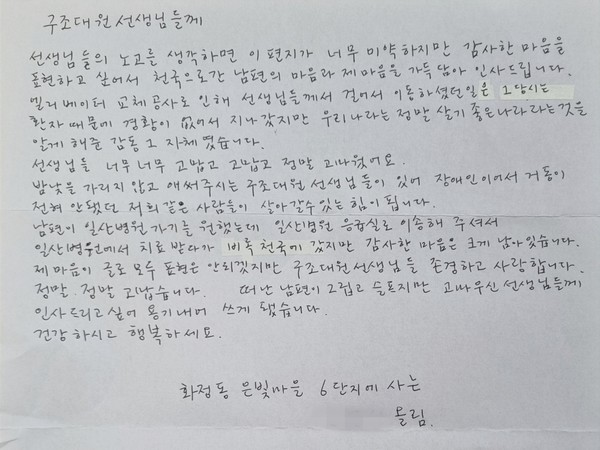 구조대원선생님들께
선생님들의 노고를 생각하면 이 편지가 너무 미약하지만 감사한 마음을
표현하고 싶어서 천국으로간 남편의 마음과 제 마음을 가득담아 인사드립니다.
엘리베이터 교체공사로 인해 선생님들께서 걸어서 이동하셨던일은 그당시는
환자 때문에 경황이 없어서 지나갔지만 우리나라는 정말 살기 좋은나라라는것을
알게해준 감동 그 자체였습니다.
선생님들 너무너무 고맙고 고맙고 정말 고마웠어요.
밤낮을 가리지 않고 애써주시는 구조대원 선생님들이 있어 장애인이어서 거동이
전혀 안됐던 저희 같은 사람들이 살아갈수있는 힘이 됩니다.
남편이 일산병원 가기를 원했는데 일산병원 응급실로 이송해 주셔서
일산병원에서 치료 받다가 비록 천국에 갔지만 감사한 마음은 크게 남아있습니다.
제 마음이 글로 모두 표현은 안되겠지만 구조대원선생님들 존경하고 사랑합니다.
정말 정말 고맙습니다. 떠난 남편이 그립고 슬프지만 고마우신 선생님들께
인사드리고 싶어 용기내어 쓰게 됐습니다.
건강하시고 행복하세요.
화정동 은빛마을 6단지에 사는
올림.